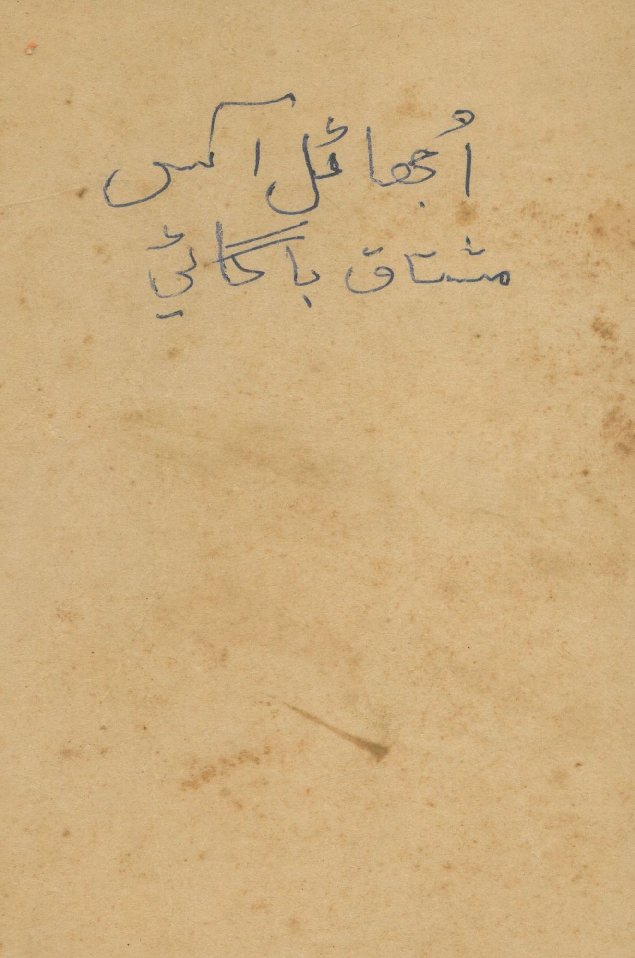 اُجھائل اکس
مشتاق باگائي